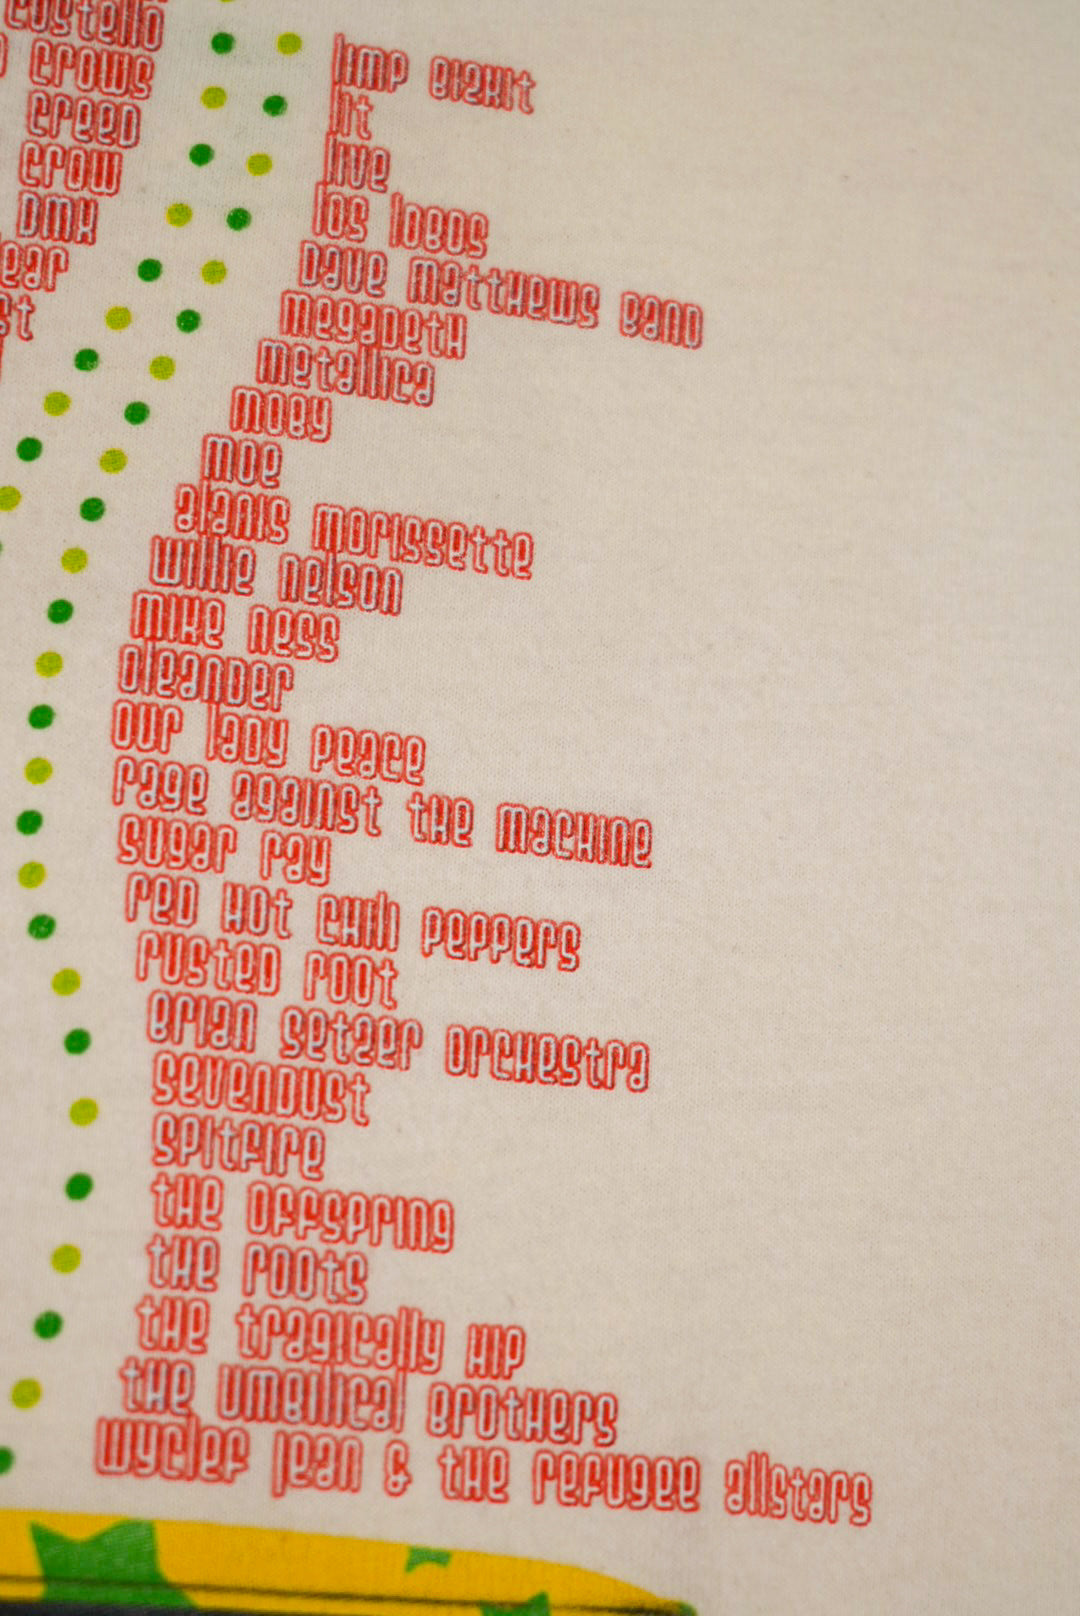 costello
crows
creed
crow
dmx
ear
st
limp bizkit
lit
live
los lobos
dave matthews band
megadeth
metallica
moby
moe
alanis morissette
willie nelson
mike ness
oleander
our lady peace
rage against the machine
sugar ray
red hot chili peppers
rusted root
brian setzer orchestra
sevendust
spitfire
the offspring
the roots
the tragically hip
the umbilical brothers
wyclef jean & the refugee allstars